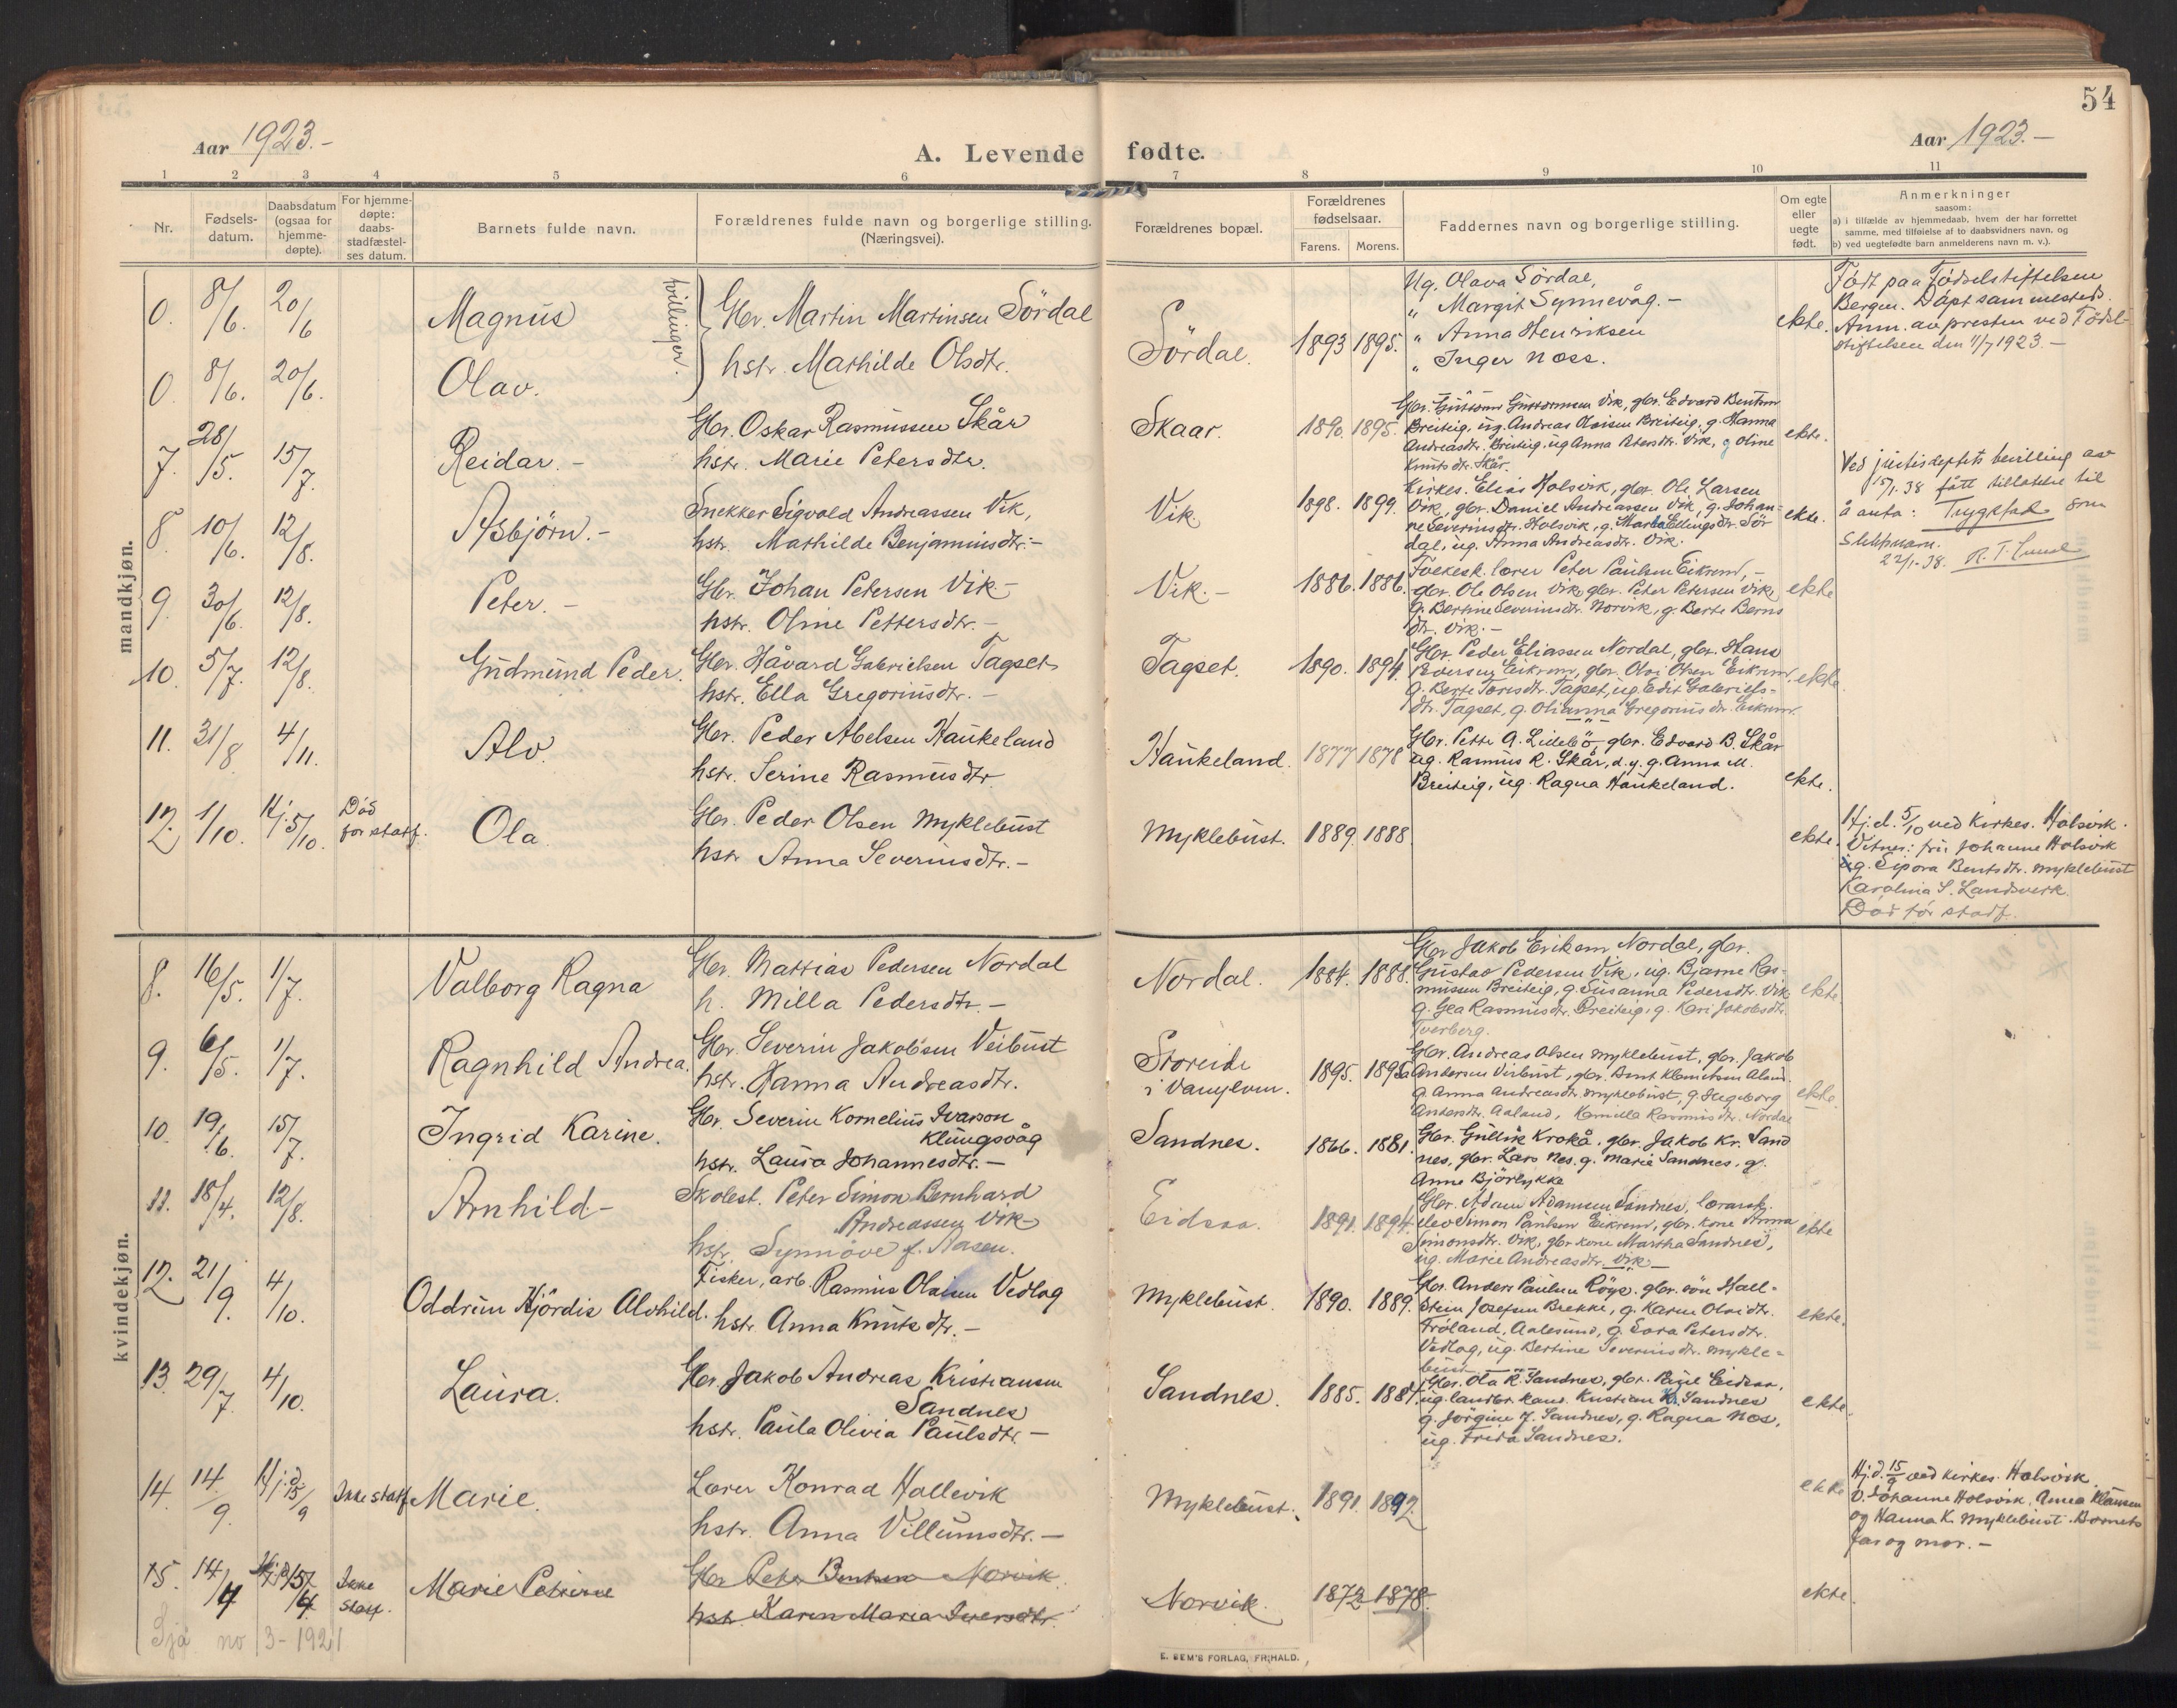 54
Aar 1923.-
A. Levende fødte.
Aar 1923.-
1 2 3 4 5 6 7 8 9 10 11
Nr.
Fødsels-
datum.
Daabsdatum
(ogsaa for
hjemme-
døpte).
For hjemme-
døpte:
daabs-
stadfæstel-
ses datum.
Barnets fulde navn.
Forældrenes fulde navn og borgerlige stilling.
(Næringsvei).
Forældrenes bopæl.
Forældrenes
fødselsaar.
Farens. Morens.
Faddernes navn og borgerlige stilling.
Om egte
eller
uegte
født.
Anmerkninger
saasom:
a) i tilfælde av hjemmedaab, hvem der har forrettet
samme, med tilføielse af to daabsvidners navn, og
b) ved uegtefødte barn anmelderens navn m. v.).
mandkjøn.
0. 8/6. 20/6 Magnus
tvillinger.
Gbr. Martin Martinsen Sördal
hstr. Mathilde Olsdtr.
Sördal. 1893 1895.
Ug. Olava Sördal,
" Margit Synnevåg.-
" Anna Henriksen
" Inger Noss.
ekte.
Født paa Fødselstiftelsen
Bergen. Döpt sammesteds.
Anm. av presten ved Fødsel-
stiftelsen den 11/7 1923.-
0. 8/6. 20/6. Olav.
7. 28/5. 15/7. Reidar.-
Gbr. Oskar Rasmussen Skår
hstr. Marie Petersdtr.
Skaar. 1890. 1895.
Gbr. Guttorm Guttormsen Vik, gbr. Edvard Bentsen
Breiteig, ug. Andreas Olaisen Breiteig, g. Hanna
Andreasdtr. Breiteig, ug Anna Petersdtr. Vik, g Oline
Knutsdtr. Skår.
ekte.
8. 10/6. 12/8. Asbjörn.-
Snekker Sigvald Andreassen Vik,
hstr. Mathilde Benjaminsdtr.-
Vik 1898. 1899.
Kirkes. Elias Holsvik, gbr. Ole Larsen
Vik, gbr. Daniel Andreassen Vik, g. Johan-
ne Severinsdtr. Holsvik, g. Marta Ellingsdtr. Sör
dal, ug. Anna Andreasdtr. Vik.
ekte.
Ved justisdeptets bevilling av
15/1.38 fått tillatelse til
å anta: Trygstad som
slektsnavn.
22/1-38.
9. 30/6. 12/8. Peter.-
Gbr. Johan Petersen Vik-
hstr. Oline Pettersdtr.-
Vik.- 1886. 1886.
Folkesk. lærer Peter Paulsen Eikrem,-
gbr. Ole Olsen Vik, gbr. Peter Petersen Vik,
g. Bertine Severinsdtr. Norvik, g. Berte Berns
dtr. Vik.-
ekte
10. 5/7. 12/8. Gudmund Peder.
Gbr. Håvard Gabrielsen Tagset
hstr. Ella Gregoriusdtr.-
Tagset. 1890. 1894.
Gbr Peder Eliassen Nordal, gbr. Hans
Iversen Eikrem, gbr. Olai Olsen Eikrem,
g. Berte Toresdtr. Tagset, ug. Edit Gabriels-
dtr. Tagset, g. Olianna Gregoriusdtr. Eikrem.
ekte
11. 31/8 4/11. Alv.
Gbr. Peder Abelsen Haukeland
hstr. Serine Rasmusdtr
Haukeland. 1877 1878
Gbr. Petter A. Lillebö, gbr. Edvard B. Skår
ug. Rasmus R. Skår, d.y. g. Anna M.
Breiteig, ug. Ragna Haukeland.
ekte.
12. 1/10. Hj. 5/10. Död
for statf. Ola
Gbr. Peder Olsen Myklebust
hstr Anna Severinsdtr.-
Myklebust. 1889. 1888
ekte.
Hj.d. 5/10 ved Kirkes. Holsvik.
Vitner: fru Johanne Holsvik
ug. Sipora Bentsdtr. Myklebust
Karolina S. Landsverk.
Död för stadf.
kvindekjøn.
8. 16/5. 1/7. Valborg Ragna
Gbr. Mattias Pedersen Nordal
h. Milla Pedersdtr.-
Nordal. 1884. 1888.
Gbr Jakob Eriksen Nordal, gbr.
Gustav Pedersen Vik, ug. Bjarne Ras-
mussen Breiteig, g. Susanna Pedersdtr. Vik
g. Gea Rasmusdtr. Breiteig, g. Kari Jakobsdtr.
Tverberg.
ekte
9. 6/5. 1/7. Ragnhild Andrea.
Gbr. Severin Jakobsen Veibust
hstr. Hanna Andreasdtr.
Storeide
i Vanylven. 1895. 1895
Gbr. Andreas Olsen Myklebust, gbr. Jakob
Andersen Veibust, gbr. Bernt Klemetsen Aland.
g. Anna Andreasdtr. Myklebust, g. Ingeborg
Andersdtr. Aaland, Kamilla Rasmusdtr. Nordal
ekte.
10. 19/6. 15/7. Ingrid Karine.
Gbr. Severin Kornelius Ivarson
Klungsvåg
hstr. Laura Johannesdtr.-
Sandnes. 1866. 1881.
Gbr. Gullik Krokå, gbr. Jakob Kr. Sand
nes, gbr. Lars Nes. g. Marie Sandnes, g.
Anne Björlykke
11. 18/4. 12/8. Arnhild-
Skolest. Peter Simon Bernhard
Andreassen Vik-
hstr. Synnöve f. Aasen.
Eidsaa. 1891. 1894.
Gbr. Adam Adamsen Sandnes, lærersk.
elev Simon Paulsen Eikrem, gbr. kone Anna
Simonsdtr. Vik, gbr kone Martha Sandnes,
ug. Marie Andreasdtr. Vik-
ekte
12. 21/9. 4/10. Oddrun Hjördis Alvhild.
Fisker, arb. Rasmus Olaisen Vedlog
hstr. Anna Knutsdtr.-
Myklebust. 1890. 1889.
Gbr. Anders Paulsen Röys. gbr. sön Hall-
stein Josefsen Brekke, g. Karen Olaidtr.
Fröland, Aalesund, g. Sara Petersdtr.
Vedlog, ug. Bertine Severinsdtr. Mykle-
bust
ekte.
13. 29/7. 4/10. Laura.
Gbr. Jakob Andreas Kristiansen
Sandnes
hstr. Paula Olivia Paulsdtr.-
Sandnes. 1885. 1884.
Gbr. Ola R. Sandnes, gbr. Eidsaa,
ug. landbr. kand. Kristian Kr. Sandnes
g. Jörgine J. Sandnes, g. Ragna Nes,
ug. Frida Sandnes.
ekte.
14. 14/9. Hj.d 15/9 Ikke statf Marie.
Lærer Konrad Hallevik
hstr. Anna Villumsdtr.-
Myklebust. 1891. 1892.
ekte
Hj.d. 15/9 ved kirkes. Holsvik.
v. Johanne Holsvik, Anna Klausen
og Hanna K. Myklebust. Barnets
far og mor.-
15. 14/4 Hjd 15/4 Ikke
statf. Marie Petrine
Gbr Peter Bentsen Norvik
hstr Karen Maria Iversdtr.
Norvik. 1872 1878.
ekte.
Sjå no 3-1921
E. SEM'S FORLAG, FR.HALD.